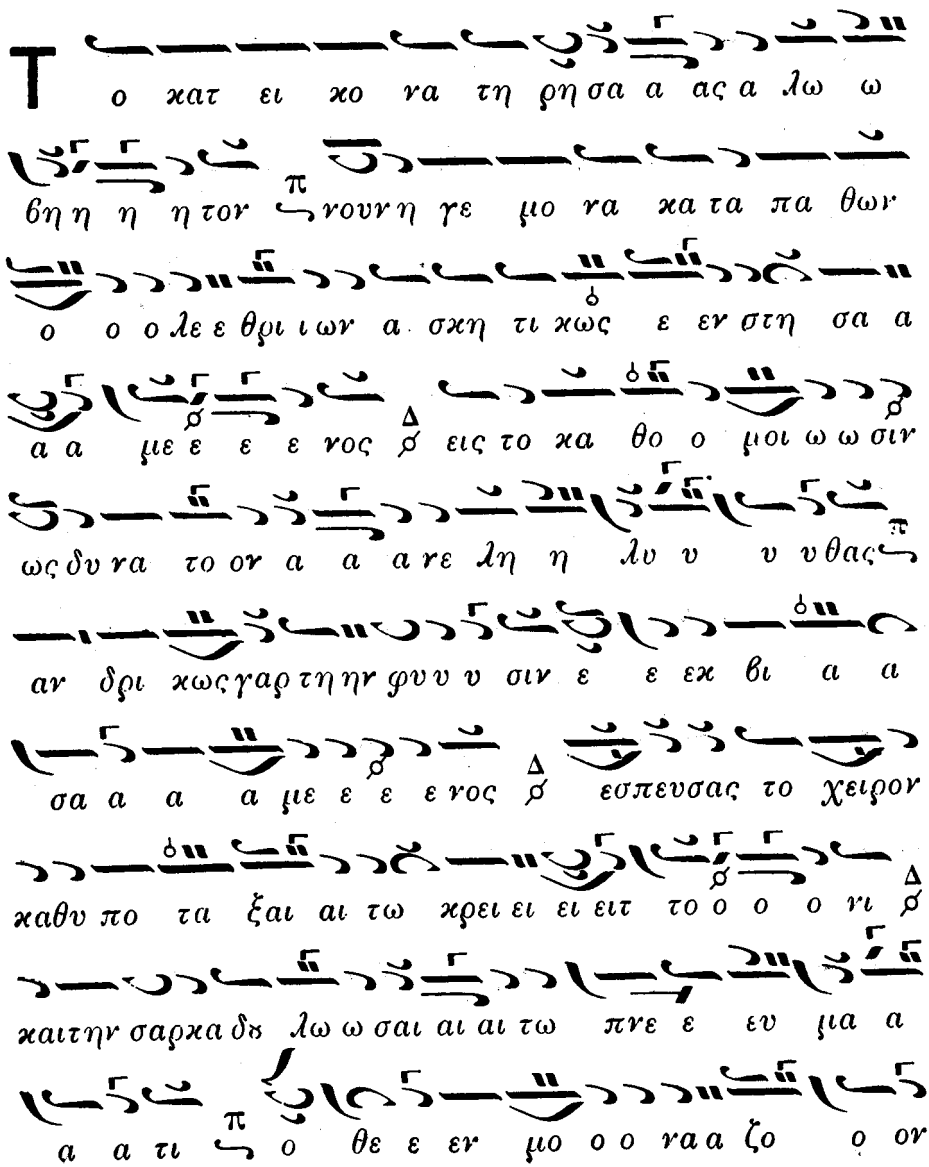 Τ ο κατ ει κο να τη ρη σα α ας α λω ω
βη η η η τον π νουν η γε μο να κα τα πα θων
ο ο ο λε ε θρι ι ων α σκη τι κως ε εν στη σα α
α α με ε ε ε νος Δ εις το κα θο ο μοι ω ω σιν
ως δυ να το ον α α α νε λη η λυ υ υ υ θας π
αν δρι κως γαρ τη ην φυ υ υ σιν ε ε εκ βι α α
σα α α α με ε ε ε νος Δ εσπευσας το χειρον
καθυ πο τα ξαι αι τω κρει ει ει ειτ το ο ο ο νι Δ
και την σαρκα δȣ λω ω σαι αι αι τω πνε ε ευ μα α
α α τι π ο θε ε εν μο ο ο να α ζο ο ον